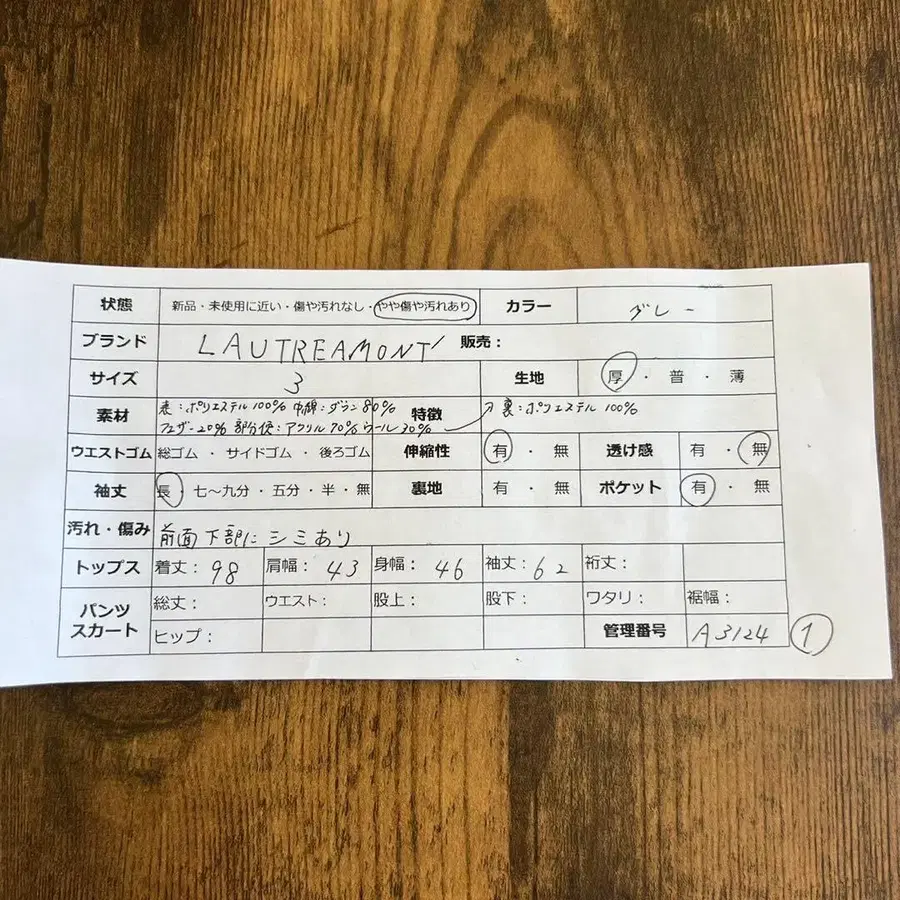 状態 新品・未使用に近い・傷や汚れなし・やや傷や汚れあり カラー グレー
ブランド LAUTREAMONT 販売：
サイズ 3 生地 厚・普・薄
素材 表：ポリエステル100% 中綿：ダウン80% 特徴 裏：ポリエステル100%
フェザー20% 部分使：アクリル70% ウール30%
ウエストゴム 総ゴム ・ サイドゴム ・ 後ろゴム 伸縮性 有 ・ 無 透け感 有 ・ 無
袖丈 長・七〜九分・五分・半・無 裏地 有 ・ 無 ポケット 有 ・ 無
汚れ・傷み 前面下部にシミあり
トップス 着丈：98 肩幅：43 身幅：46 袖丈：62 裄丈：
パンツ スカート 総丈： ウエスト： 股上： 股下： ワタリ： 裾幅：
ヒップ： 管理番号 A3124 1